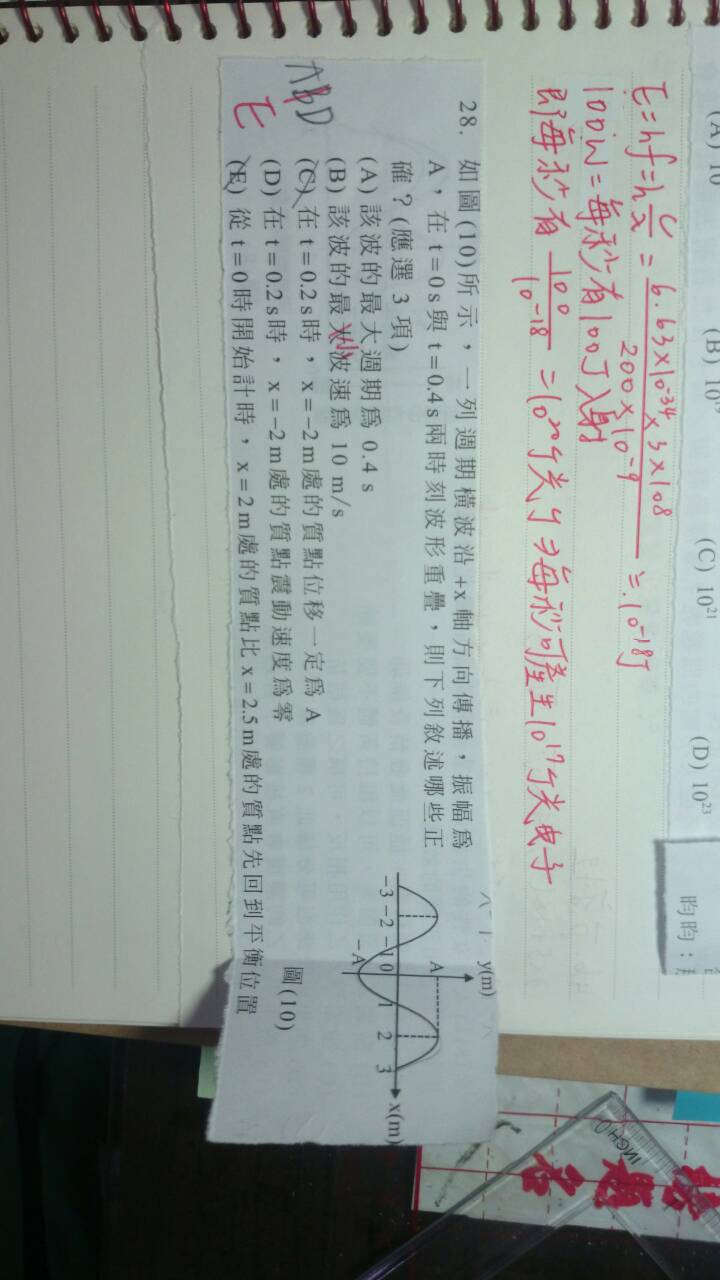 (A) 10
(B) 10¹⁹
(C) 10²¹
(D) 10²³
昀昀：
E=hf=h c/λ = 6.63×10⁻³⁴×3×10⁸ / 200×10⁻⁹ ≒ 10⁻¹⁸J
100W = 每秒有100J入射
即每秒有 100 / 10⁻¹⁸ = 10²⁰個光子 ⇒ 每秒可產生10¹⁷個光電子
28. 如圖(10)所示，一列週期橫波沿 +x 軸方向傳播，振幅為
A，在 t=0 s 與 t=0.4 s 兩時刻波形重疊，則下列敘述哪些正
確？(應選 3 項)
(A) 該波的最大週期為 0.4 s
(B) 該波的最大波速為 10 m/s
小
(C) 在 t=0.2 s 時，x=-2 m 處的質點位移一定為 A
(D) 在 t=0.2 s 時，x=-2 m 處的質點震動速度為零
(E) 從 t=0 時開始計時，x=2 m 處的質點比 x=2.5 m 處的質點先回到平衡位置
ABD
E
y(m)
A
-3 -2 -1 0 1 2 3 x(m)
-A
圖(10)
INGH
0